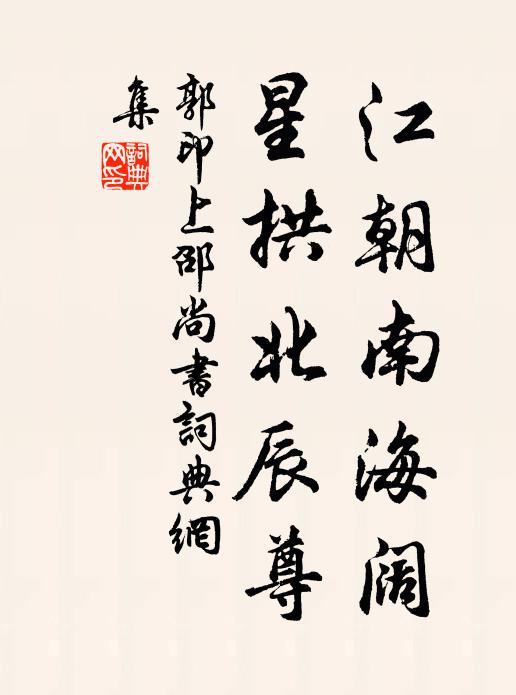 江朝南海阔
星拱北辰尊
郭印上邵尚書詞典網
集
詞典網印